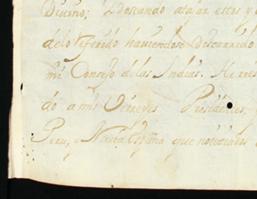 Discino; Deseando atajar estos y
de lo referido haviendose Descurrido
mi Consejo de las Indias. He res
do a mis Virreyes Presidentes,
Peru, y Nueva España que noticiados